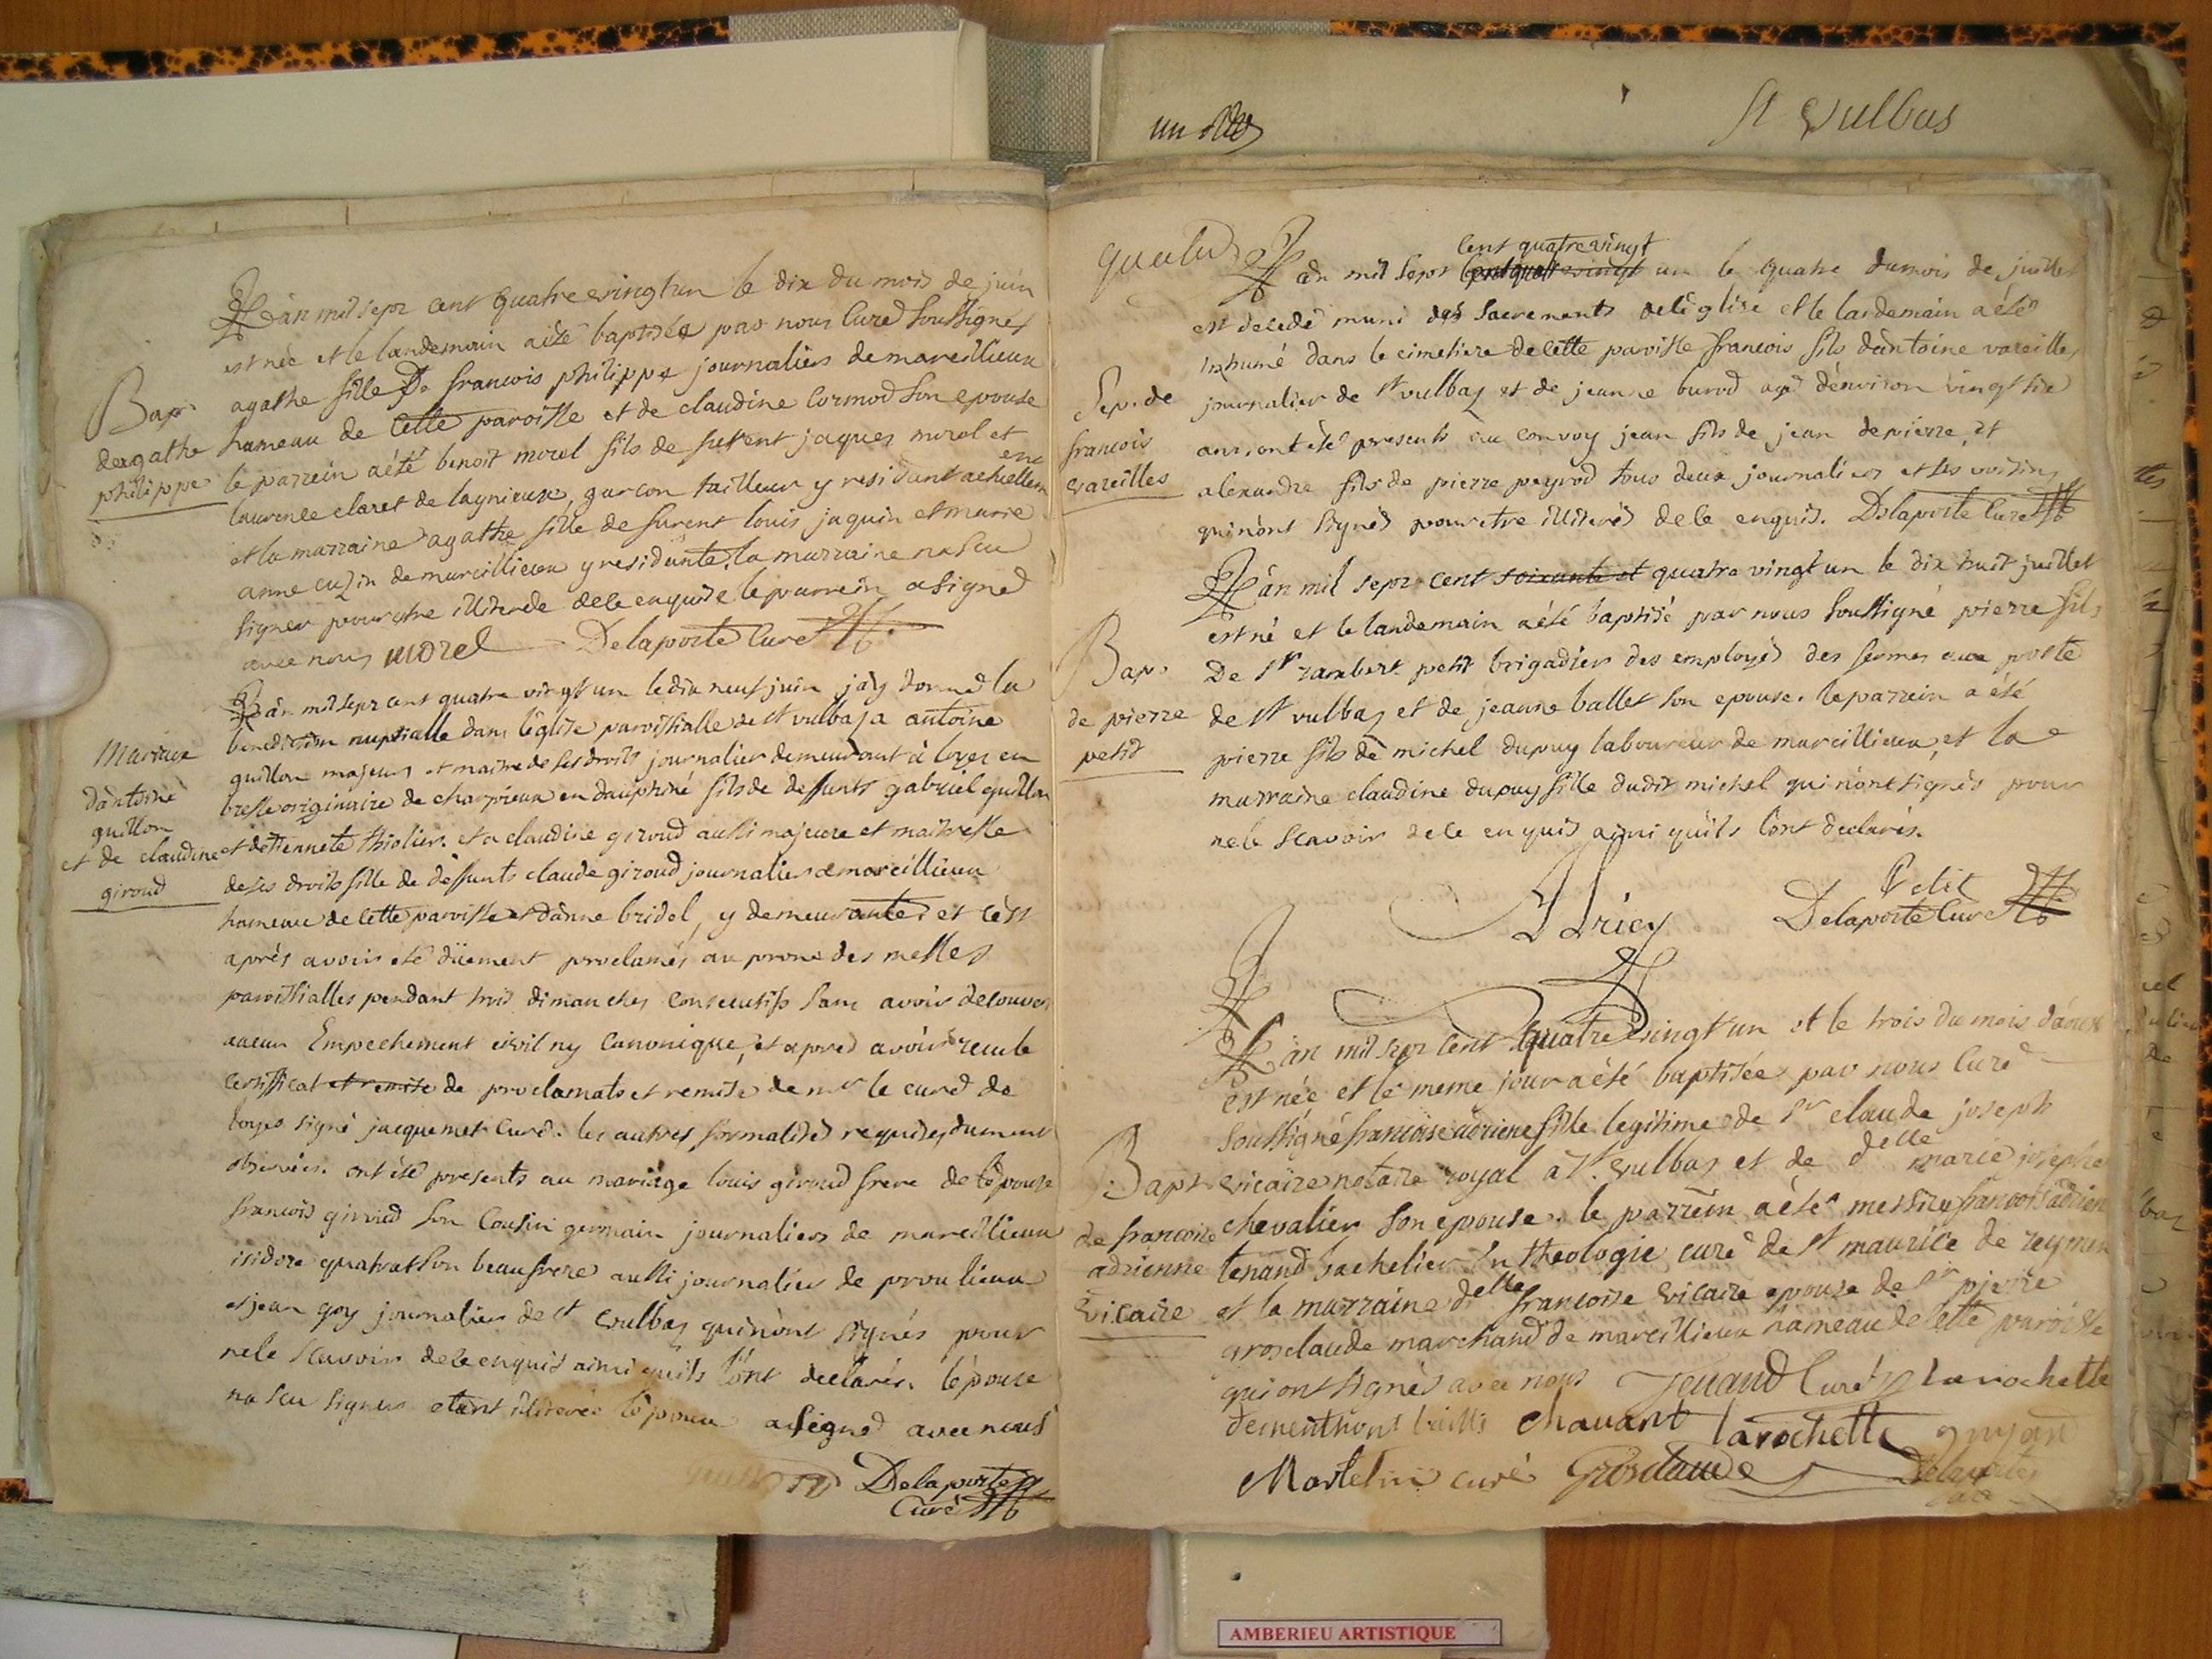 un Rôle
St Vulbas
Lân mil sept cent quatre vingt un le dix du mois de juin
est née et le landemain a été baptisée par nous Curé soussigné
agathe fille De francois philippe journalier de marcillieux
Bap.
de agathe
philippe
hameau de Cette paroisse et de claudine Cormod son epouse
le parrein a été benoit morel fils de furent jaques morel et
laurence claret de lagnieux, garcon tailleur y residant actuellem
ent
et la marraine agathe fille de furent louis jaquin et marie
anne cuzin de marcillieux y residante, la marraine na scu
signer pour etre illiterée de ce enquise le parrein a signé
avec nous morel Delaporte Curé
Lân mil sept cent quatre vingt un le dix neuf juin jày donné la
benediction nuptialle dans léglise paroissialle de st vulbas a antoine
Mariage
dantoine
guillon
et de claudine
giroud
guillon majeur et maitre de ses droits journalier demeurant à loyes en
bresse originaire de charpieux en dauphiné fils de deffunts gabriel guillon
et détiennete thiolier. et a claudine giroud aussi majeure et maitresse
de ses droits fille de deffunts claude giroud journalier de marcillieux
hameau de cette paroisse et dànne bridel, y demeurante, et cést
après avoir été düement proclamés au prone des messes
paroissialles pendant trois dimanches consecutifs sans avoir decouver
aucun Empechement civil ny Canonique, et apres avoir recu le
certifficat et remise de proclamats et remise de mr le curé de
loyes signé jacquemet Curé. les autres formalités requises dument
observées. ont été presents au mariage louis giroud frere de lépouse
francois giroud son Cousin germain journaliers de marcillieux
isidore quatrat son beaufrere aussi journalier de proulieux
et jean goy journalier de st vulbas qui nònt signés pour
ne le scavoir de ce enquis ainsi quìls lònt declarés. lépouse
na scu signer etant illiterée lépoux a signé avec nous
Delaporte
Curé
Lân mil sept cent quatre vingt
cent quatrevingt un le quatre du mois de juillet
est decedé muni des Sacrements de léglise et le landemain a été
inhumé dans le cimetiere de cette paroisse francois fils dàntoine vareilles
Sep. de
francois
vareilles
journalier de st vulbas et de jeanne burod agé dénviron vingt six
ans, ont été presents au convoy jean fils de jean depierre, et
alexandre fils de pierre peyrod tous deux journaliers et ses voisins
qui nònt signés pour etre illiterés de ce enquis. Delaporte Curé
Lân mil sept cent soixante et quatre vingt un le dix huit juillet
est né et le landemain a été baptisé par nous soussigné pierre fils
Bap.
de pierre
petit
De sr rambert petit brigadier des employés des fermes au poste
de st vulbas et de jeanne ballet son epouse. le parrein a été
pierre fils de michel dupuy laboureur de marcillieux, et la
marraine claudine dupuy fille dudit michel qui nònt signés pour
ne le scavoir de ce enquis ainsi quìls lònt declarés.
Petit
Delaporte Curé
Lân mil sept cent quatre vingt un et le trois du mois dàoust
est née et le meme jour a été baptisée par nous Curé
soussigné francoise adriene fille legitime de sr claude joseph
Bapt
de francoise
adrienne
vicaire
vicaire notaire royal à st. vulbas et de delle marie josephe
chevalier son epouse. le parrein a été messire francois adrien
tenand bachelier en theologie curé de st maurice de reymen
et la marraine delle francoise vicaire epouse de sr pierre
grosclaude marchand de marcillieux hameau de cette paroisse
qui ont signés avec nous Tenand Curé Larochette
chavant larochette
Martelin curé Grosclaude Delaporte
AMBERIEU ARTISTIQUE